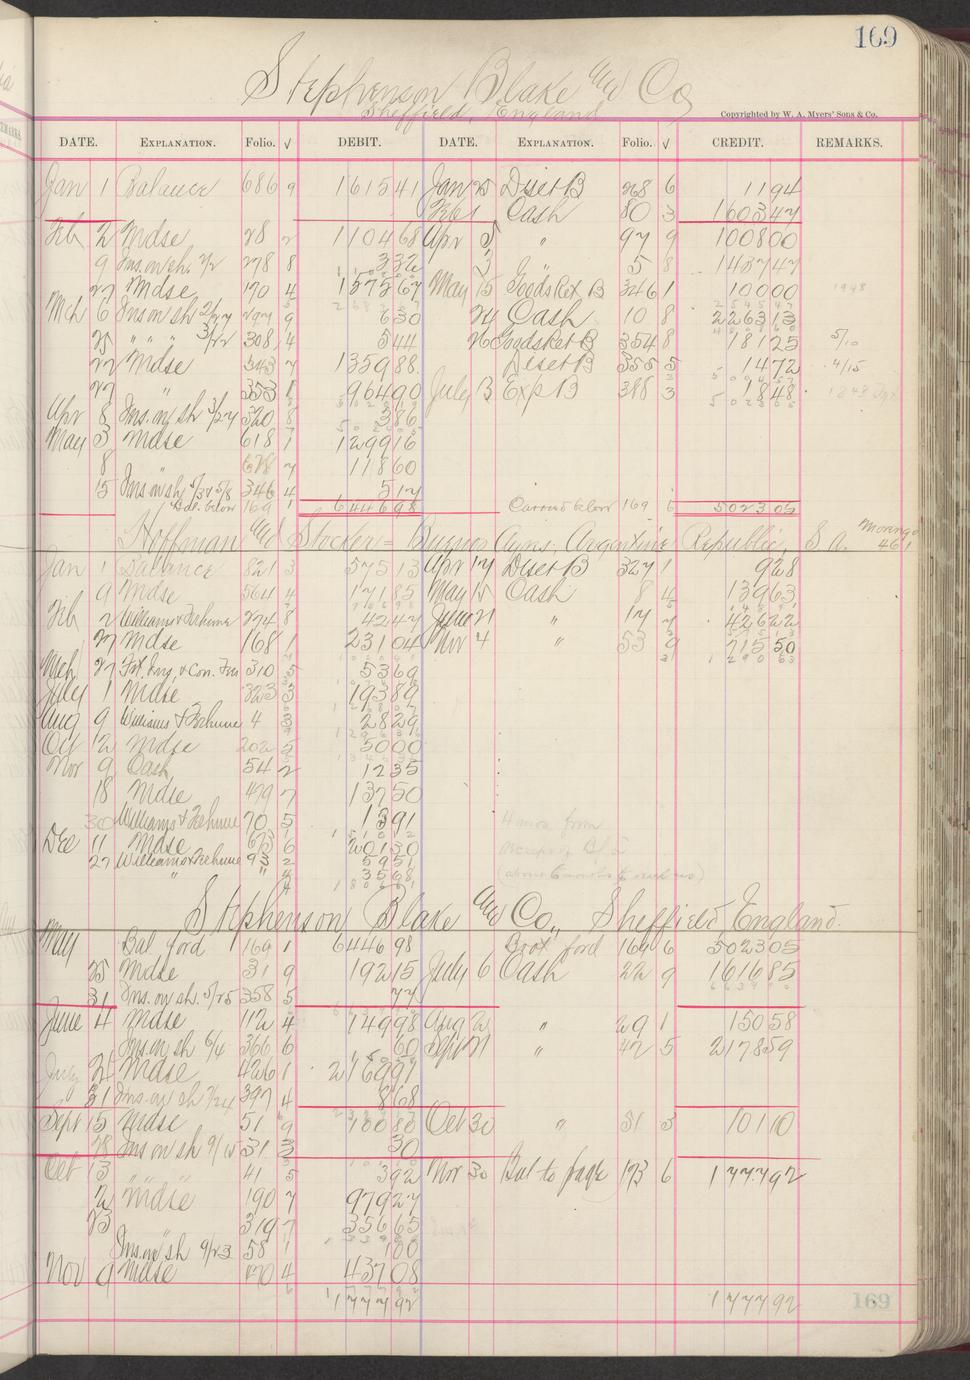 169
Stephenson Blake and Co
Sheffield, England
Copyrighted by W. A. Myers' Sons & Co.
DATE. EXPLANATION. Folio. √ DEBIT. DATE. EXPLANATION. Folio. √ CREDIT. REMARKS.
Jan 1 Balance 686 9 1615 41 Jan 25 Disct B 268 6 11 94
Feb 1 Cash 80 3 1603 47
Feb 2 Mdse 28 2 1104 68 Apr 5 " 97 9 1008 00
9 Ins. on sh. 2/2 278 8 3 32 5 8 1487 47
27 Mdse 170 4 1575 67 May 15 Goods Ret B 346 1 100 00
Mch 6 Ins on sh 2/27 297 9 6 30 24 Cash 10 8 2263 13
25 " " " 3/22 308 4 5 44 26 Goods Ret B 354 8 181 25 5/10
27 Mdse 343 7 1359 88 Disct B 355 5 14 72 4/15
27 " 353 1 964 90 July 13 Exp B 388 3 18 48
Apr 8 Ins. on sh 3/27 320 8 3 86
May 3 Mdse 618 1 1299 16
8 678 7 118 60
15 Ins on sh 5/3 & 5/8 346 4 5 17
Bal. below 169 1 6446 98 Carried below 169 6 5023 05
Hoffman and Stocker = Buenos Ayres, Argentine Republic, S A.
Jan 1 Balance 821 3 575 13 Apr 17 Disct B 327 1 9 28
9 Mdse 564 4 171 85 May 15 Cash 8 4 139 63
Feb 2 Williams & Terhune 274 8 42 47 June 21 " 17 7 426 22
27 Mdse 168 1 231 04 Nov 4 " 53 9 715 50
Mch 27 310 5 53 69
July 1 Mdse 323 3 193 89
Aug 9 Williams & Terhune 4 3 28 29
Oct 12 Mdse 202 5 50 00
Nov 9 Cash 54 2 12 35
18 Mdse 479 7 137 50
30 Williams & Terhune 70 5 13 91
Dec 11 Mdse 673 6 201 30
27 Williams & Terhune 93 2 59 51
" " 35 68
Stephenson Blake and Co., Sheffield, England.
May Bal. ford 169 1 6446 98 Brot ford 169 6 5023 05
25 Mdse 31 9 192 15 July 6 Cash 22 9 1616 85
31 Ins. on sh. 5/25 358 5 77
June 4 Mdse 112 4 149 98 Aug 2 " 29 1 150 58
Ins. on sh 6/4 366 6 60 Sept 21 " 42 5 2178 59
July 24 Mdse 426 1 2169 91
31 Ins. on sh 7/24 397 4 8 68
Sept 15 Mdse 51 9 100 80 Oct 30 " 51 3 101 10
28 Ins on sh 9/15 31 3 30
Oct 13 " " " 41 5 3 92 Nov 30 Bal to page 173 6 1777 92
2 Mdse 190 7 979 27
23 " 319 7 356 65
Ins. on sh 9/23 58 1 1 00
Nov 9 Mdse 470 4 437 08
1777 92 1777 92
169